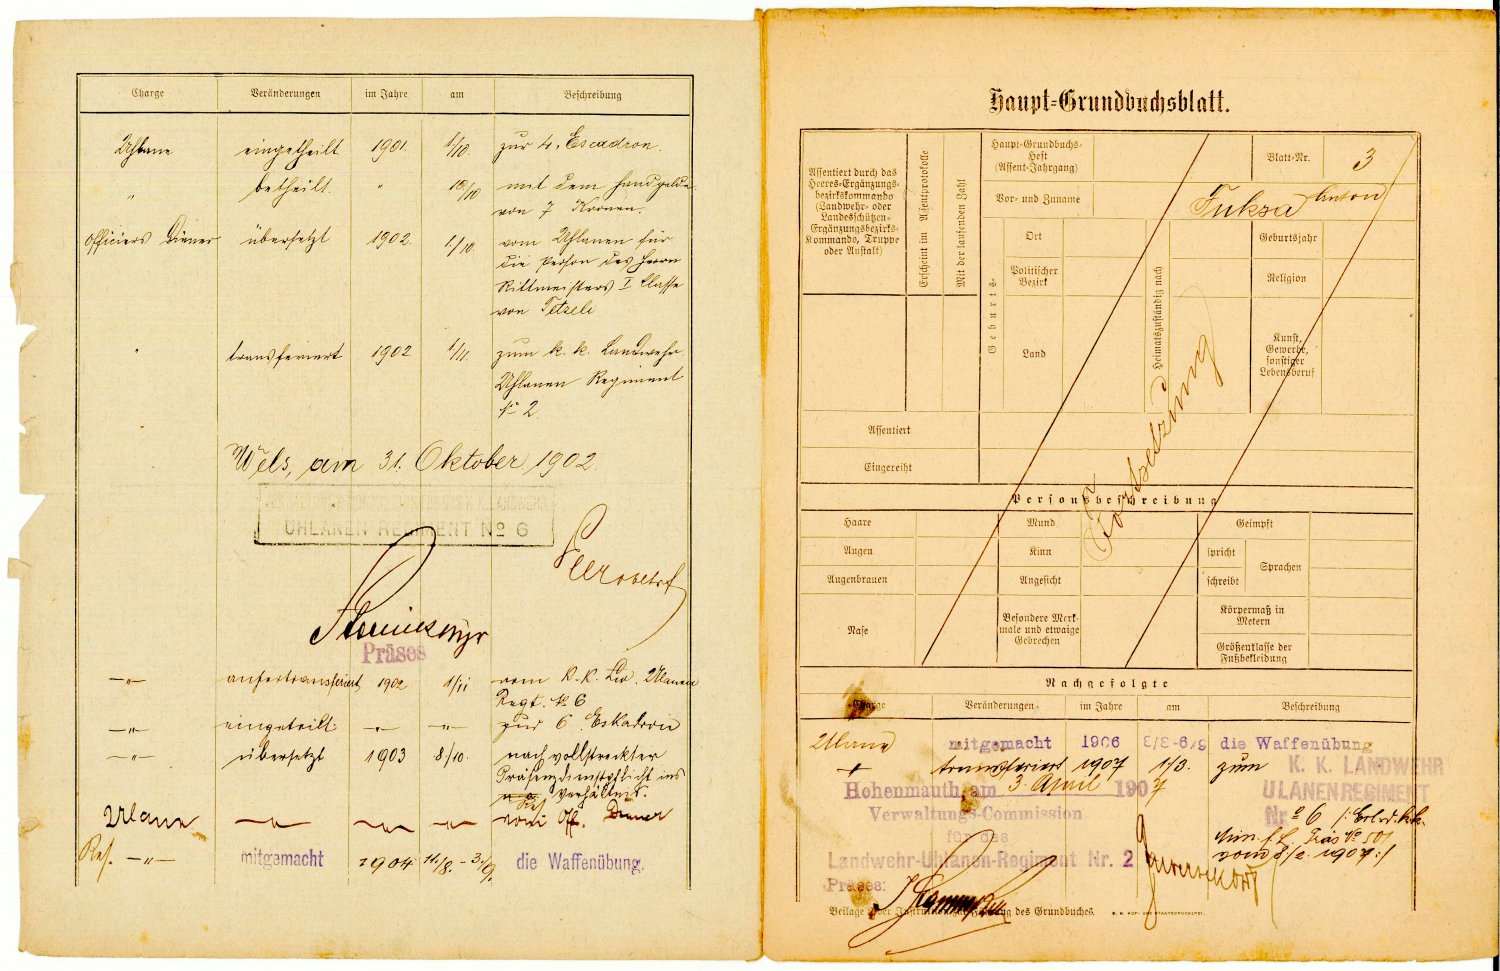 Charge Veränderungen im Jahre am Beschreibung
Uhlane eingetheilt 1901 1/10. zur 4. Escadron.
" betheilt. " 10/10 mit dem Handgelde
von 7 Kronen.
Officiers Diener übersetzt 1902. 1/10. vom Uhlanen für
die Person des Herrn
Rittmeisters I Classe
von Tetzeli
transferiert 1902 1/11. zum k. k. Landwehr
Uhlanen Regiment
No 2.
Wels, am 31. Oktober 1902.
K. K. LANDWEHR
UHLANEN REGIMENT No 6
Präses
—"— anhertransferiert 1902 1/11 vom k. k. Lw. Ulanen
Regt. No 6
—"— eingeteilt —"— —"— zur 6. Eskadron
—"— übersetzt 1903 8/10. nach vollstreckter
Präsenzdienstpflicht ins
Verhältnis.
Ulane —"— —"— —"— vom Off. Diener
Res. —"— mitgemacht 1904 11./8.-3./9. die Waffenübung.
Haupt-Grundbuchsblatt.
Assentiert durch das
Heeres-Ergänzungs-
bezirkskommando
(Landwehr- oder
Landesschützen-
Ergänzungsbezirks-
Kommando, Truppe
oder Anstalt)
Erscheint im Assentprotokolle
Mit der laufenden Zahl
Haupt-Grundbuchs-
Heft
(Assent-Jahrgang)
Blatt-Nr. 3
Vor- und Zuname Fuksa Anton
Geburts-
Ort
Politischer
Bezirk
Land
Heimatszuständig nach
Geburtsjahr
Religion
Kunst,
Gewerbe,
sonstiger
Lebensberuf
Fortsetzung
Assentiert
Eingereiht
Personsbeschreibung
Haare Mund Geimpft
Augen Kinn spricht Sprachen
Augenbrauen Angesicht schreibt
Nase
Besondere Merk-
male und etwaige
Gebrechen
Körpermaß in
Metern
Größenklasse der
Fußbekleidung
Nachgefolgte
Charge Veränderungen im Jahre am Beschreibung
Ulane mitgemacht 1906 3/8-9/9 die Waffenübung
transferiert 1907 1/3. zum K. K. LANDWEHR
Hohenmauth, am 3. April 1907 ULANENREGIMENT
Verwaltungs-Commission Nr. 6
für das
Min. f. L. Präs No 501
Landwehr-Uhlanen-Regiment Nr. 2 vom 8/2. 1907:/
Präses:
Beilage der Instruktion zur Führung des Grundbuches. K. K. HOF- UND STAATSDRUCKEREI.